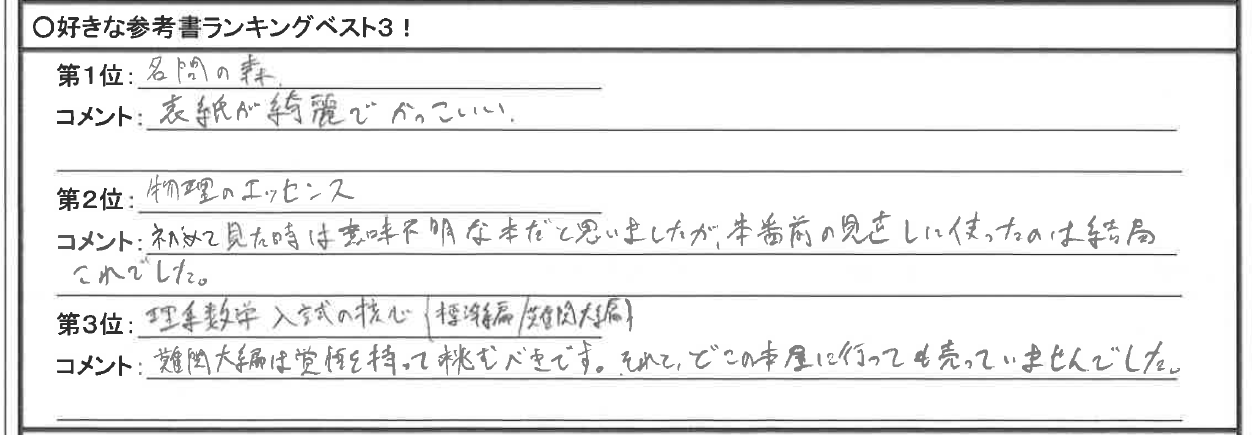 ○好きな参考書ランキングベスト3!
第1位:名問の森.
コメント:表紙が綺麗でかっこいい.
第2位:物理のエッセンス
コメント:初めて見た時は意味不明な本だと思いましたが,本番前の見直しに使ったのは結局
これでした。
第3位:理系数学 入試の核心 {標準編/難関大編}
コメント:難関大編は覚悟を持って挑むべきです。それと,どこの本屋に行っても売っていませんでした。